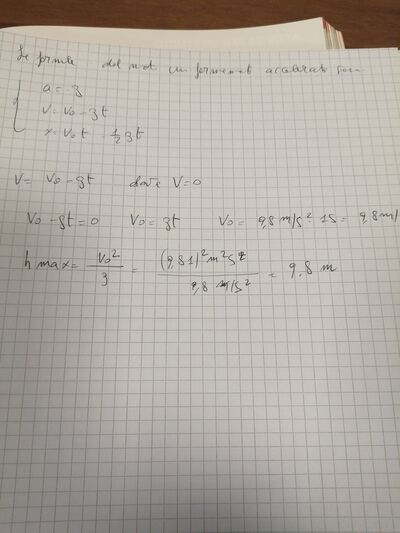 Le formule del moto uniformemente accelerato sono
a = g
v = v0 - gt
x = v0 t - 1/2 gt
V = V0 - gt dove V=0
V0 - gt = 0 V0 = gt V0 = 9,8 m/s² · 1s = 9,8 m/
h max = V0²/g = (9,81)² m² s²/9,8 m/s² = 9,8 m